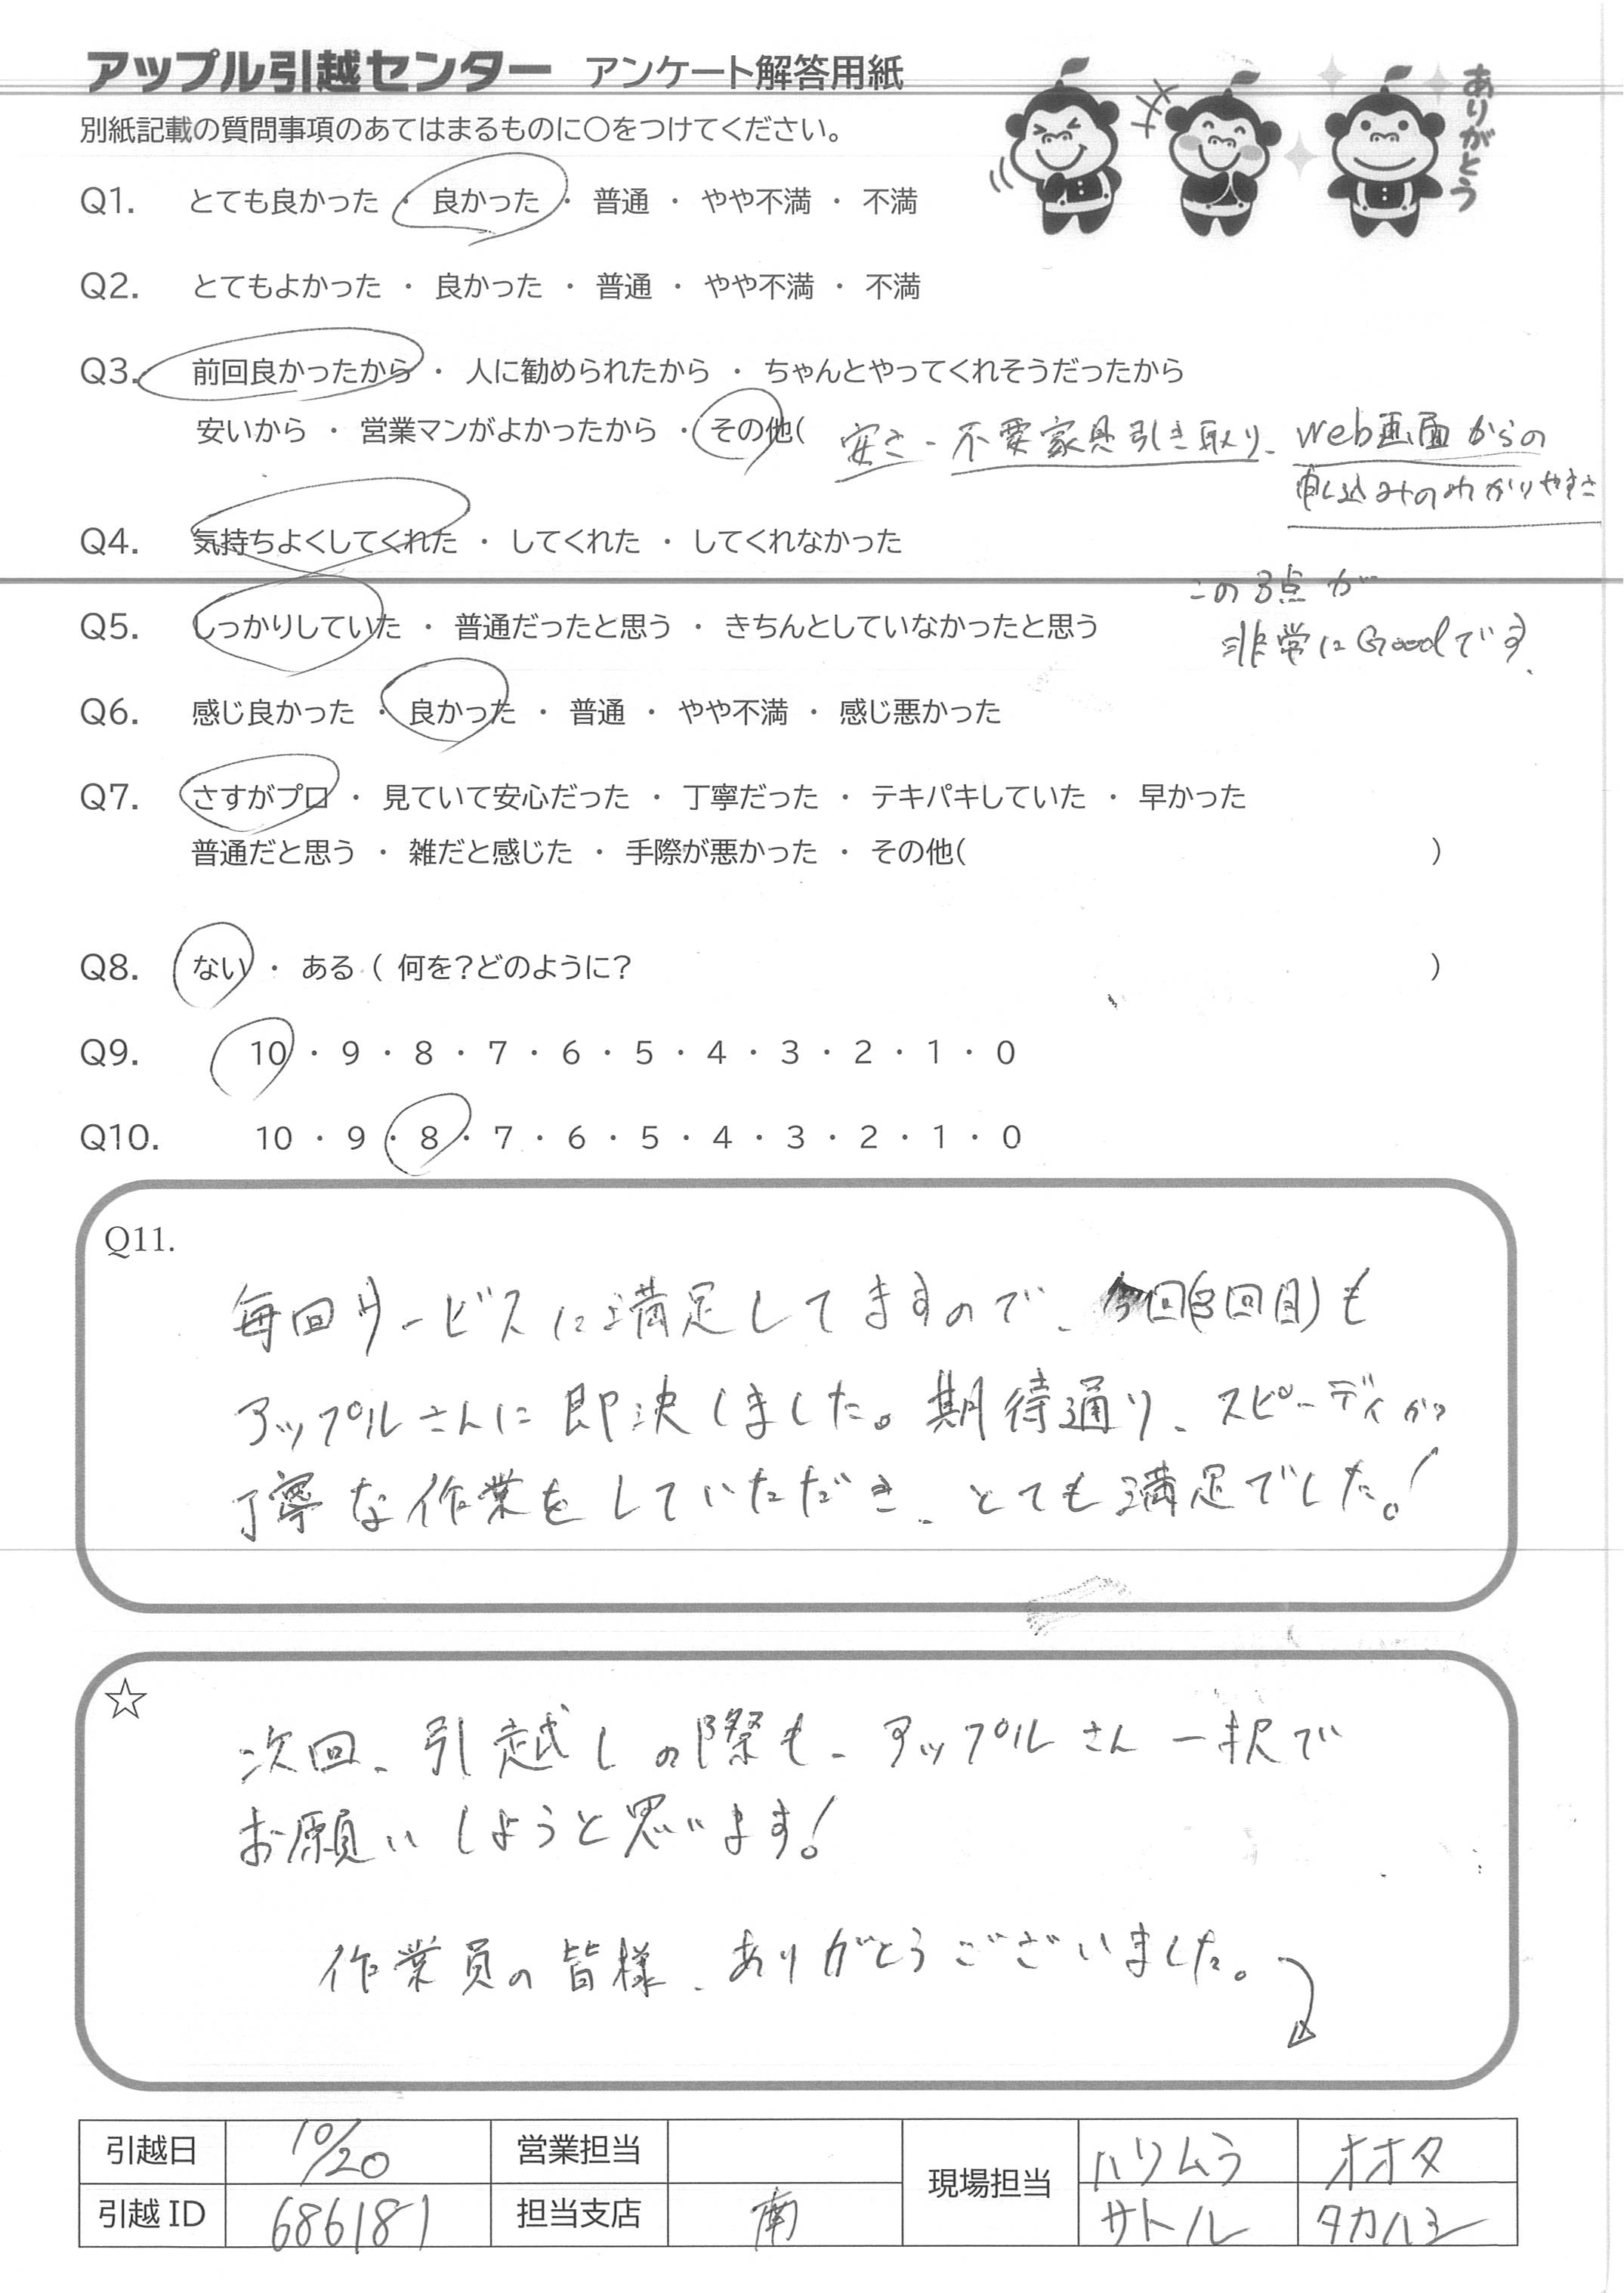 アップル引越センター アンケート解答用紙
ありがとう
別紙記載の質問事項のあてはまるものに○をつけてください。
Q1. とても良かった ・ 良かった ・ 普通 ・ やや不満 ・ 不満
Q2. とてもよかった ・ 良かった ・ 普通 ・ やや不満 ・ 不満
Q3. 前回良かったから ・ 人に勧められたから ・ ちゃんとやってくれそうだったから
安いから ・ 営業マンがよかったから ・ その他( 安さ、不要家具引き取り、Web画面からの
申し込みのわかりやすさ
Q4. 気持ちよくしてくれた ・ してくれた ・ してくれなかった
この3点が
Q5. しっかりしていた ・ 普通だったと思う ・ きちんとしていなかったと思う
非常にGoodです。
Q6. 感じ良かった ・ 良かった ・ 普通 ・ やや不満 ・ 感じ悪かった
Q7. さすがプロ ・ 見ていて安心だった ・ 丁寧だった ・ テキパキしていた ・ 早かった
普通だと思う ・ 雑だと感じた ・ 手際が悪かった ・ その他( )
Q8. ない ・ ある ( 何を?どのように? )
Q9. 10 ・ 9 ・ 8 ・ 7 ・ 6 ・ 5 ・ 4 ・ 3 ・ 2 ・ 1 ・ 0
Q10. 10 ・ 9 ・ 8 ・ 7 ・ 6 ・ 5 ・ 4 ・ 3 ・ 2 ・ 1 ・ 0
Q11.
毎回サービスに満足してますので、今回(3回目)も
アップルさんに即決しました。期待通り、スピーディかつ
丁寧な作業をしていただき、とても満足でした!
☆
次回、引越しの際も、アップルさん一択で
お願いしようと思います!
作業員の皆様、ありがとうございました。
引越日 10/20 営業担当 現場担当 ハリムラ オオタ
引越ID 686181 担当支店 南 サトル タカハシ